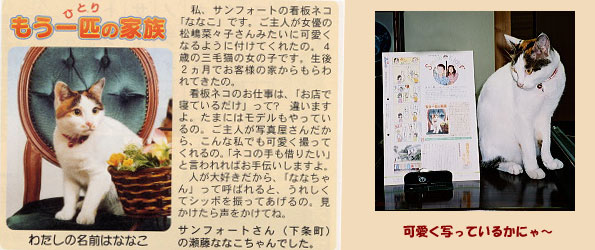 もう一匹の家族
ひとり
私、サンフォートの看板ネコ
「ななこ」です。ご主人が女優の
松嶋菜々子さんみたいに可愛く
なるように付けてくれたの。４
歳の三毛猫の女の子です。生後
２ヵ月でお客様の家からもらわ
れてきたの。
看板ネコのお仕事は、「お店で
寝ているだけ」って？　違います
よ。たまにはモデルもやってい
るの。ご主人が写真屋さんだか
ら、こんな私でも可愛く撮って
くれるの。「ネコの手も借りたい」
と言われればお手伝いしますよ。
人が大好きだから、「ななちゃ
ん」って呼ばれると、うれしくて
シッポを振ってあげるの。見
かけたら声をかけてね。
サンフォートさん（下条町）
の瀬藤ななこちゃんでした。
わたしの名前はななこ
可愛く写っているかにゃ～